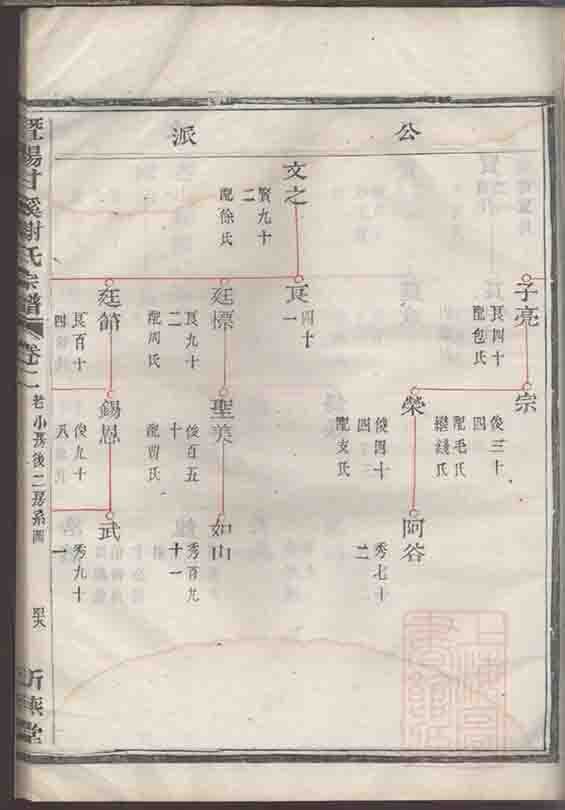 公派
子亮
艮四十
配包氏
宗
俊三十
四
配毛氏
繼錢氏
榮
俊四十
四
配支氏
阿谷
秀七十
二
文之
賢九十
二
配徐氏
艮
四十
一
廷標
艮九十
二
配周氏
聖美
俊百五
十
配賈氏
如山
秀百九
十一
廷節
艮百十
四
錫恩
俊九十
八
武
秀九十
一
暨陽甘溪謝氏宗譜
卷二
老小房後二房系圖